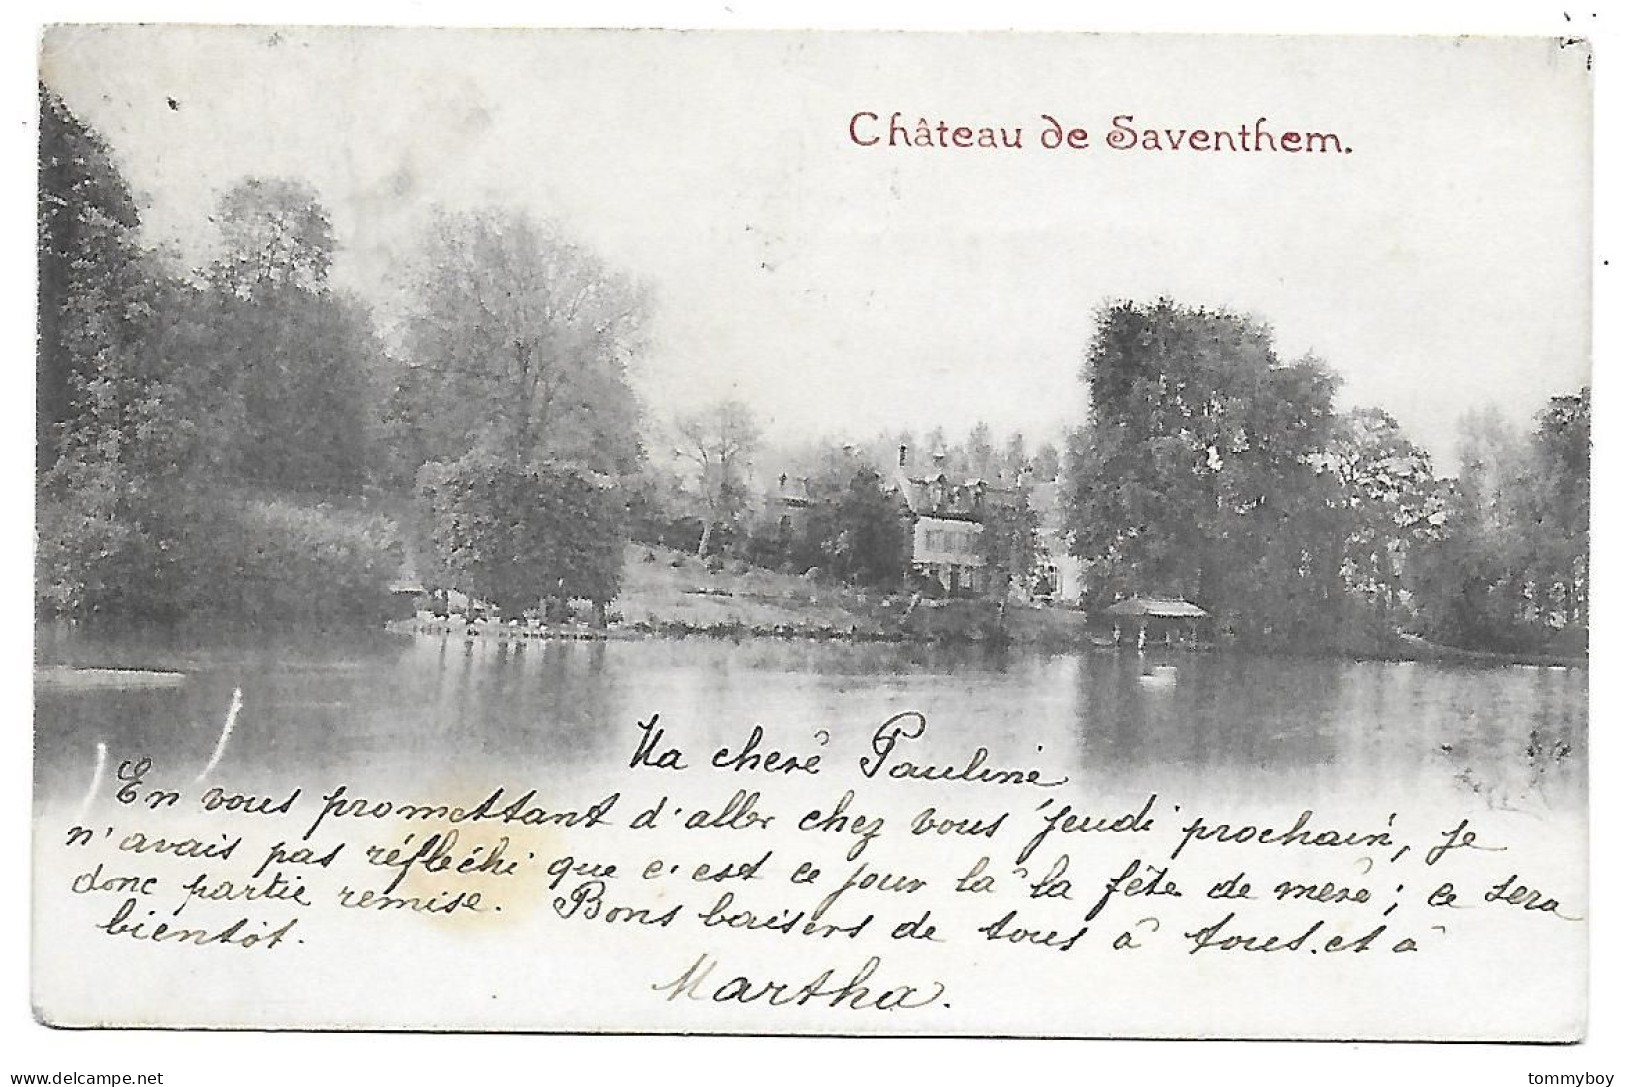 Château de Saventhem.
Ma chere Pauline
En vous promettant d'aller chez vous Jeudi prochain, je
n'avais pas réfléchi que c'est ce jour là la fête de mère ; ce sera
donc partie remise. Bons baisers de tous à tous. et à
bientôt.
Martha.
delcampe.net
tommyboy